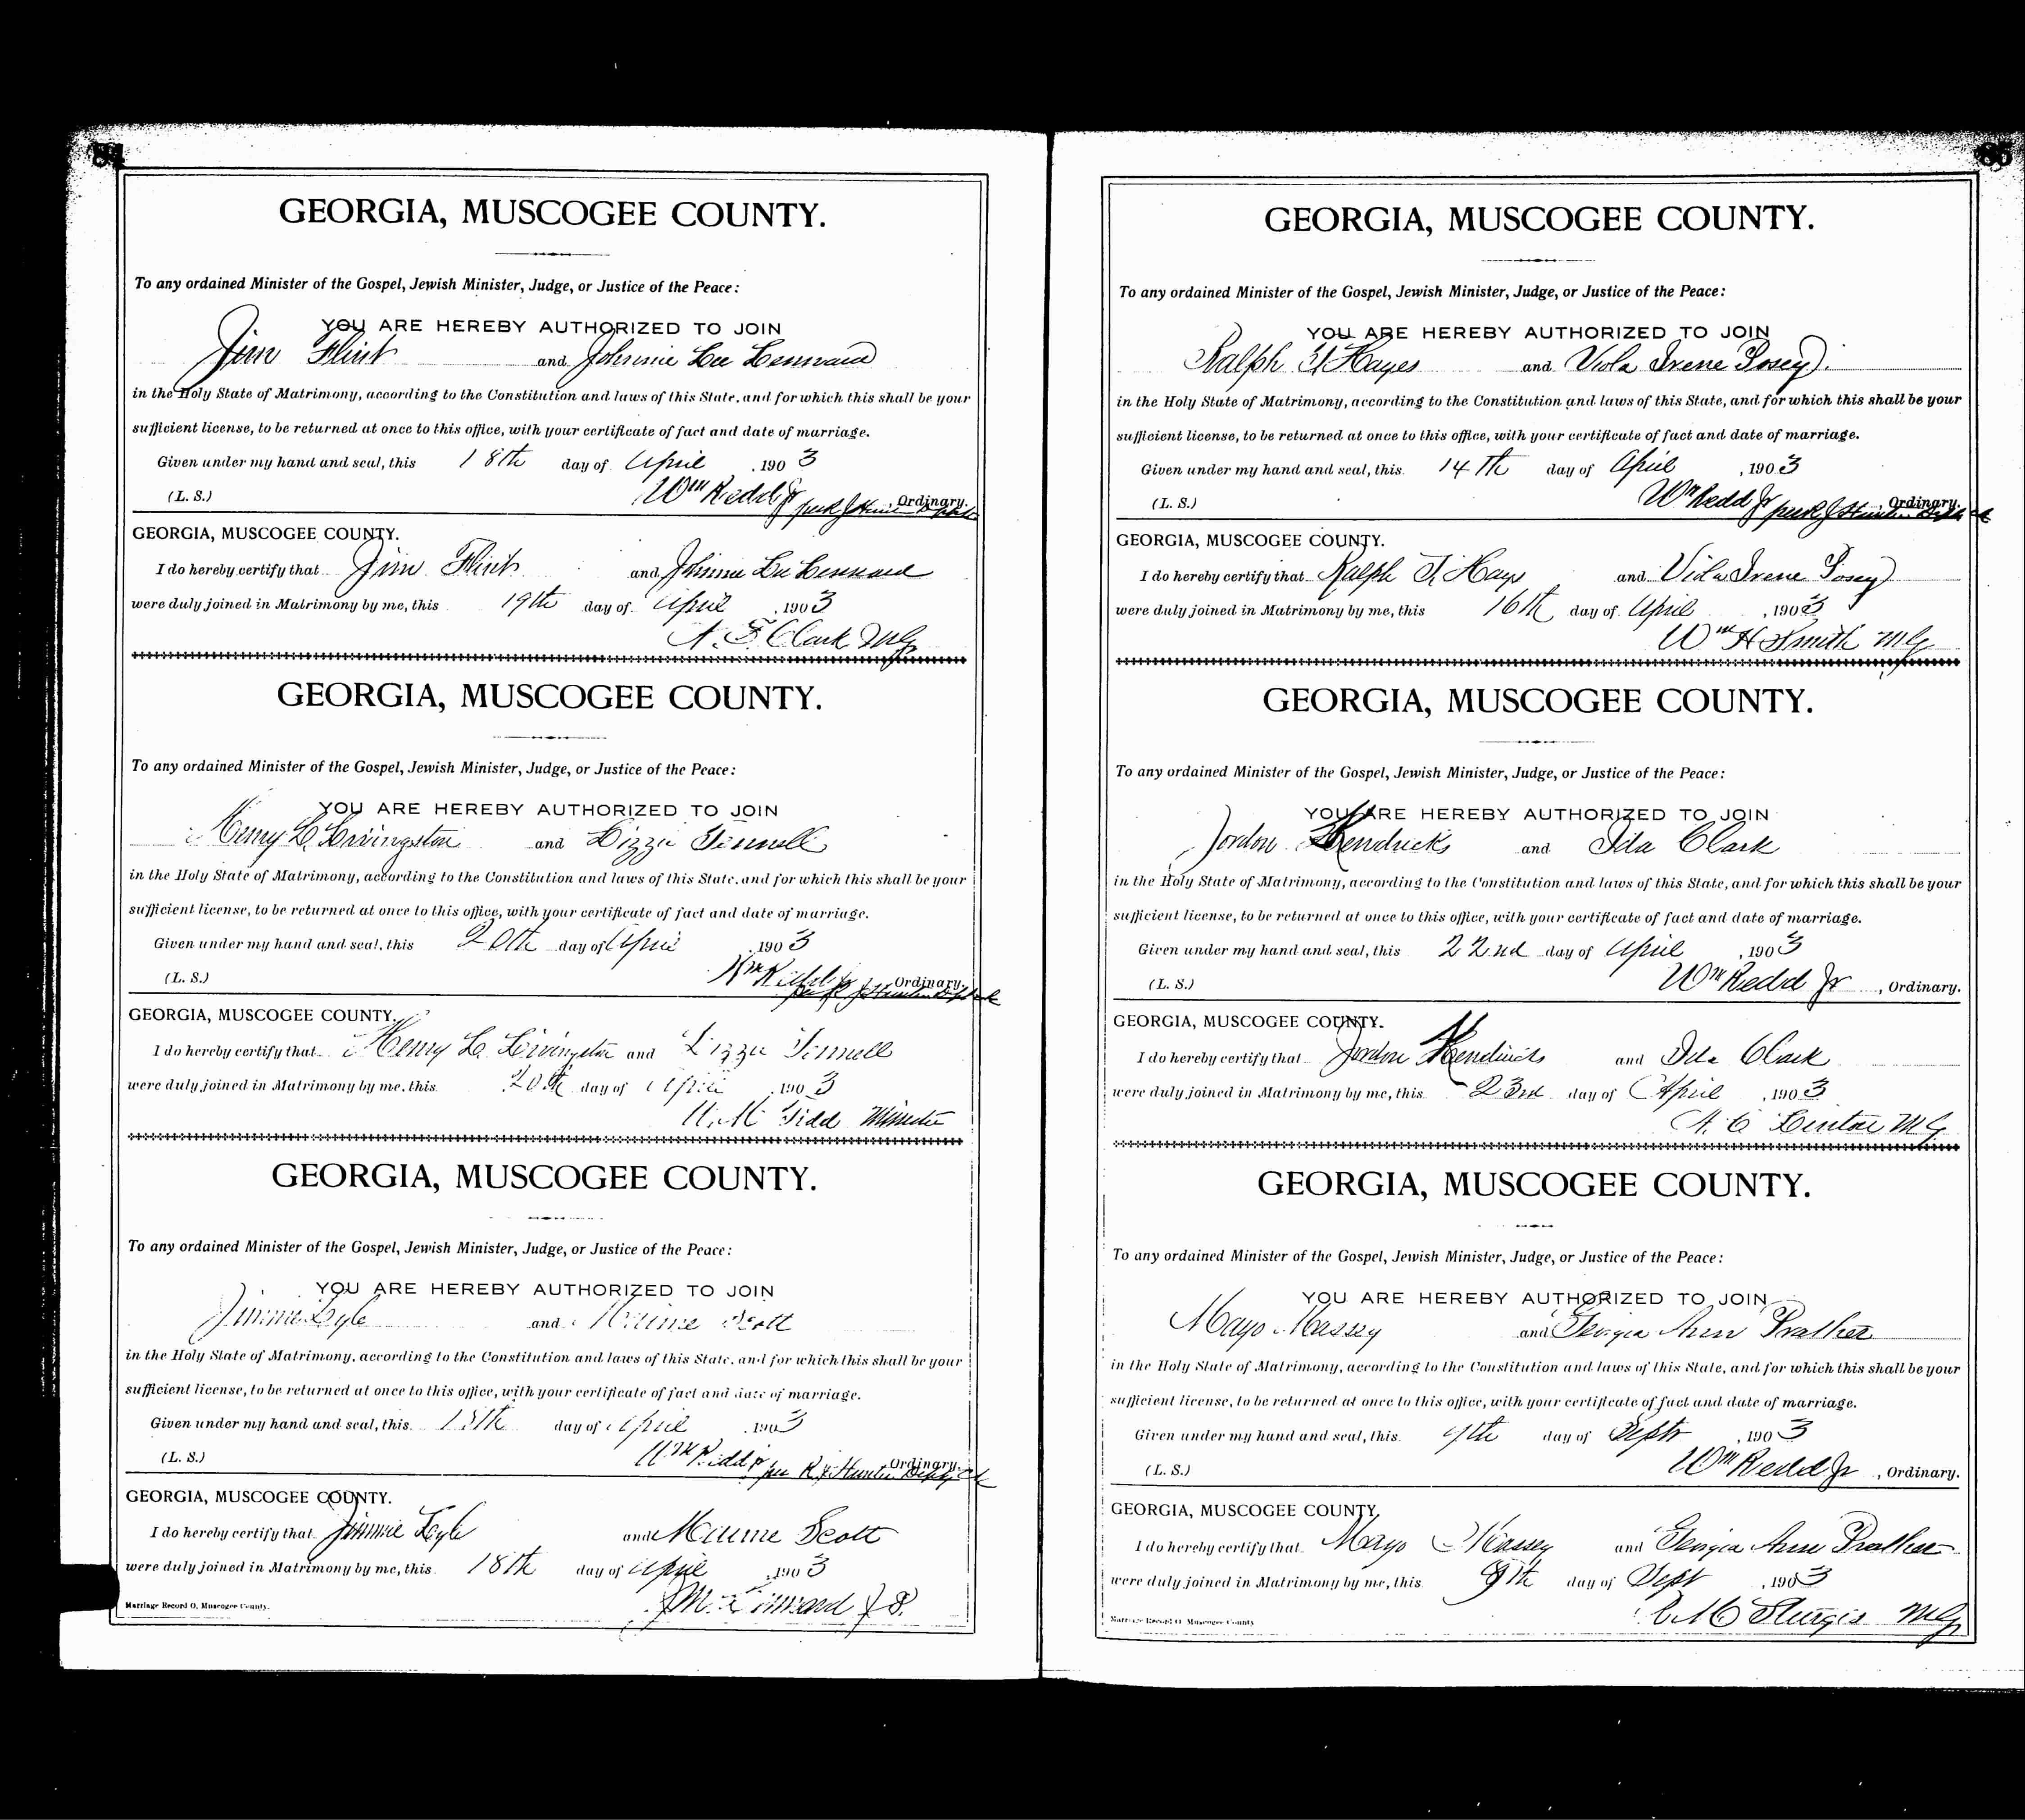 84
GEORGIA, MUSCOGEE COUNTY.
To any ordained Minister of the Gospel, Jewish Minister, Judge, or Justice of the Peace:
YOU ARE HEREBY AUTHORIZED TO JOIN
Jim Flint and Johnnie Lee Lennard
in the Holy State of Matrimony, according to the Constitution and laws of this State, and for which this shall be your
sufficient license, to be returned at once to this office, with your certificate of fact and date of marriage.
Given under my hand and seal, this 18th day of April, 1903
(L. S.) Wm Redd Jr , Ordinary.
GEORGIA, MUSCOGEE COUNTY.
I do hereby certify that Jim Flint and Johnnie Lee Lennard
were duly joined in Matrimony by me, this 19th day of April, 1903
Clark MG
GEORGIA, MUSCOGEE COUNTY.
To any ordained Minister of the Gospel, Jewish Minister, Judge, or Justice of the Peace:
YOU ARE HEREBY AUTHORIZED TO JOIN
Henry L. Livingston and Lizzie Fennell
in the Holy State of Matrimony, according to the Constitution and laws of this State, and for which this shall be your
sufficient license, to be returned at once to this office, with your certificate of fact and date of marriage.
Given under my hand and seal, this 20th day of April, 1903
(L. S.) Wm Redd Jr , Ordinary.
GEORGIA, MUSCOGEE COUNTY.
I do hereby certify that Henry L. Livingston and Lizzie Fennell
were duly joined in Matrimony by me, this 20th day of April, 1903
Tidd Minister
GEORGIA, MUSCOGEE COUNTY.
To any ordained Minister of the Gospel, Jewish Minister, Judge, or Justice of the Peace:
YOU ARE HEREBY AUTHORIZED TO JOIN
Jimmie Lyle and Maime Scott
in the Holy State of Matrimony, according to the Constitution and laws of this State, and for which this shall be your
sufficient license, to be returned at once to this office, with your certificate of fact and date of marriage.
Given under my hand and seal, this 18th day of April, 1903
(L. S.) Wm Redd Jr per R J Hunter Depty Clk Ordinary.
GEORGIA, MUSCOGEE COUNTY.
I do hereby certify that Jimmie Lyle and Maime Scott
were duly joined in Matrimony by me, this 18th day of April, 1903
J.M. J P.
Marriage Record O, Muscogee County.
85
GEORGIA, MUSCOGEE COUNTY.
To any ordained Minister of the Gospel, Jewish Minister, Judge, or Justice of the Peace:
YOU ARE HEREBY AUTHORIZED TO JOIN
Ralph T. Hayes and Viola Irene Posey
in the Holy State of Matrimony, according to the Constitution and laws of this State, and for which this shall be your
sufficient license, to be returned at once to this office, with your certificate of fact and date of marriage.
Given under my hand and seal, this 14th day of April, 1903
(L. S.) Wm Redd Jr Ordinary.
GEORGIA, MUSCOGEE COUNTY.
I do hereby certify that Ralph T. Hays and Viola Irene Posey
were duly joined in Matrimony by me, this 16th day of April, 1903
Wm H Smith MG
GEORGIA, MUSCOGEE COUNTY.
To any ordained Minister of the Gospel, Jewish Minister, Judge, or Justice of the Peace:
YOU ARE HEREBY AUTHORIZED TO JOIN
Jordon Hendricks and Ida Clark
in the Holy State of Matrimony, according to the Constitution and laws of this State, and for which this shall be your
sufficient license, to be returned at once to this office, with your certificate of fact and date of marriage.
Given under my hand and seal, this 22nd day of April, 1903
(L. S.) Wm Redd Jr , Ordinary.
GEORGIA, MUSCOGEE COUNTY.
I do hereby certify that Jordon Hendricks and Ida Clark
were duly joined in Matrimony by me, this 23rd day of April, 1903
Linton MG
GEORGIA, MUSCOGEE COUNTY.
To any ordained Minister of the Gospel, Jewish Minister, Judge, or Justice of the Peace:
YOU ARE HEREBY AUTHORIZED TO JOIN
Mayo Massey and Georgia Ann Prather
in the Holy State of Matrimony, according to the Constitution and laws of this State, and for which this shall be your
sufficient license, to be returned at once to this office, with your certificate of fact and date of marriage.
Given under my hand and seal, this 9th day of Sept, 1903
(L. S.) Wm Redd Jr , Ordinary.
GEORGIA, MUSCOGEE COUNTY,
I do hereby certify that Mayo Massey and Georgia Ann Prather
were duly joined in Matrimony by me, this 9th day of Sept, 1903
Sturgis MG
Marriage Record O Muscogee County